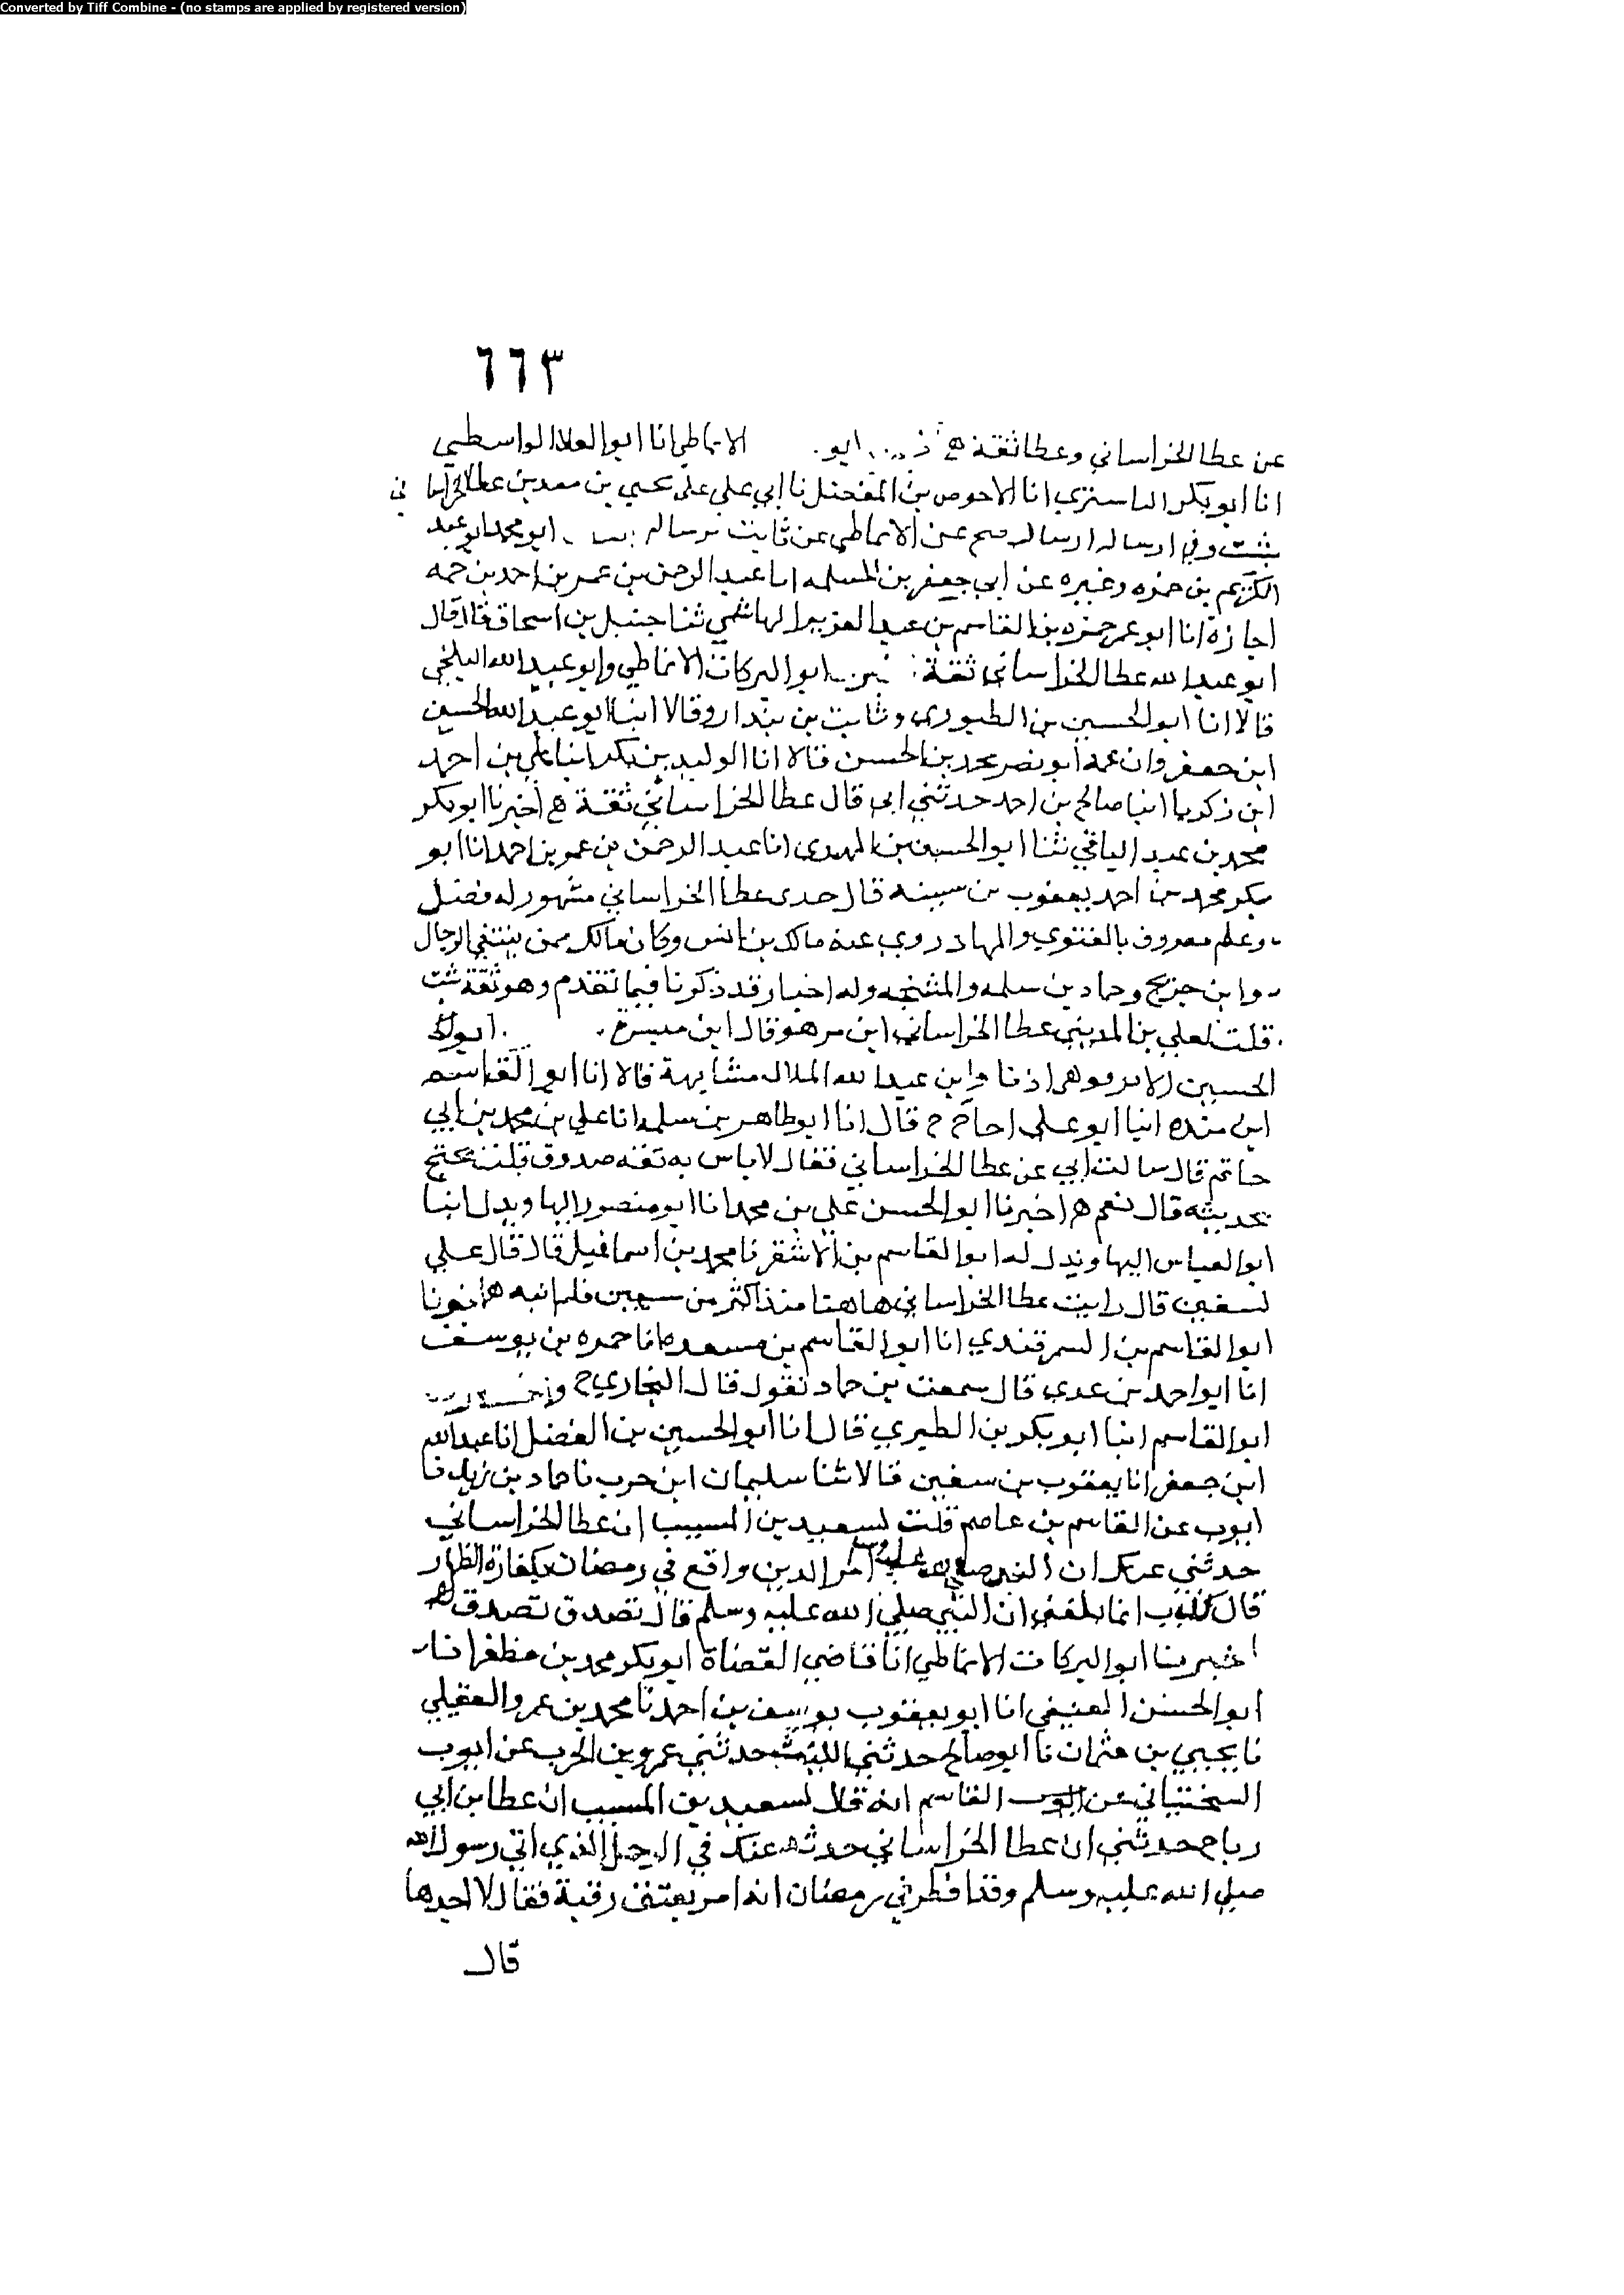 Converted by Tiff Combine - (no stamps are applied by registered version)
٦٦٣
عن عطا الخراساني وعطا ثقة ابو الانماطي انا ابو العلا الواسطي
انا ابو بكر انا الاحوص بن المفضل نا ابي على يحيي بن معد بن عطا
ثبت وفي ارساله عن الانماطي عن ثابت ابو محمد عبد
الكريم بن حمزه وغيره عن ابي جعفر بن المسلمه انا عبد الرحمن بن عمر بن احمد بن حمه
اجازة انا ابو عمر حمزه بن القاسم بن عبد العزيز الهاشمي ثنا حنبل بن اسحاق قال قال
ابو عبد الله عطا الخراساني ثقة ابو البركات الانماطي وابو عبد الله البلخي
قالا انا ابو الحسين بن الطيوري وثابت بن بندار وقالا انبا ابو عبد الله الحسين
ابن جعفر وابن عمه ابو نصر محمد بن الحسن قالا انا الوليد بن بكر انبا علي بن احمد
ابن زكريا انبا صالح بن احمد حدثني ابي قال عطا الخراساني ثقة اخبرنا ابو بكر
محمد بن عبد الباقي ثنا ابو الحسين بن المهدي انا عبد الرحمن بن عمر بن احمد انا ابو
بكر محمد بن احمد يعقوب بن سيبه قال حدى عطا الخراساني مشهور له فضل
وعلم معروف بالفتوي والجهاد روي عنه مالك بن انس وكان مالك ممن ينتقي الرجال
وابن جريج وحماد بن سلمه والمشيخه وله اخبار قد ذكرنا فيما تقدم وهو ثقة ثبت
قلت لعلي بن المديني عطا الخراساني ابن من هو قال ابن ميسرة
الحسين اذنا وابن عبد الله الملال مشابهة قالا انا ابو القاسم
ابن منده انبا ابو علي اجا ح قال انا ابو طاهر بن سلمه انا علي بن محمد بن ابي
حاتم قال سالت ابي عن عطا الخراساني فقال لا باس به ثقه صدوق قلت يحتج
بحديثه قال نعم اخبرنا ابو الحسن علي بن محمد انا ابو منصور النهاوندي انبا
ابو العباس النهاوندي انا ابو القاسم بن الاشقر نا محمد بن اسماعيل قال قال علي
لسفين قال رايت عطا الخراساني هاهنا منذ اكثر من سبعين فلم انبه اخبرنا
ابو القاسم بن السمرقندي انا ابو القاسم بن مسعده انا حمزه بن يوسف
انا ابو احمد بن عدي قال سمعت بن حماد يقول قال البخاري ح
ابو القاسم انبا ابو بكر بن الطبري قال انا ابو الحسين بن الفضل انا عبد الله
ابن جعفر انا يعقوب بن سفين قالا ثنا سليمان ابن حرب نا حماد بن زيد نا
ايوب عن القاسم بن عاصم قلت لسعيد بن المسيب ان عطا الخراساني
حدثني عنك ان النبي صلى الله عليه وسلم امر الذين واقع في رمضان بكفارة الظهار
قال كذب انما بلغني ان النبي صلي الله عليه وسلم قال تصدق تصدق
اخبرنا ابو البركات الانماطي انا قاضي القضاة ابو بكر محمد بن مظفر انا
ابو الحسن العتيقي انا ابو يعقوب يوسف بن احمد نا محمد بن عمرو العقيلي
نا يحيي بن عثمان نا ابو صالح حدثني الليث حدثني عمرو بن الحرب عن ايوب
السختياني عن القاسم انه قال لسعيد بن المسيب ان عطا بن ابي
رباح حدثني ان عطا الخراساني حدثه عنك في الرجل الذي اتي رسول الله
صلي الله عليه وسلم وقد افطر في رمضان انه امر بعتق رقبة فقال لا احدها
قال